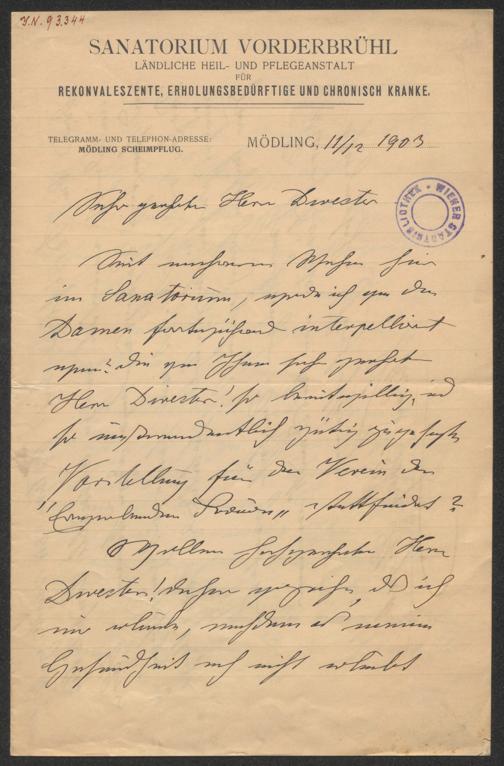 J.N. 93.344
SANATORIUM VORDERBRÜHL
LÄNDLICHE HEIL- UND PFLEGEANSTALT
FÜR
REKONVALESZENTE, ERHOLUNGSBEDÜRFTIGE UND CHRONISCH KRANKE.
TELEGRAMM- UND TELEPHON-ADRESSE:
MÖDLING SCHEIMPFLUG.
MÖDLING, 11/12 1903
WIENER STADTBIBLIOTHEK
Sehr geehrter Herr Director
Seit mehreren Wochen hier
im Sanatorium, werde ich von den
Damen fortwährend interpellirt
wann? die von Ihnen sehr geehrter
Herr Director! so bereitwillig, und
so außerordentlich gütig zugesagte
Vorstellung für den Verein der
"Erwerbenden Frauen" stattfindet?
Wollen hochgeehrter Herr
Director! daher verzeihen, daß ich
mir erlaube, nachdem es meine
Gesundheit noch nicht erlaubt